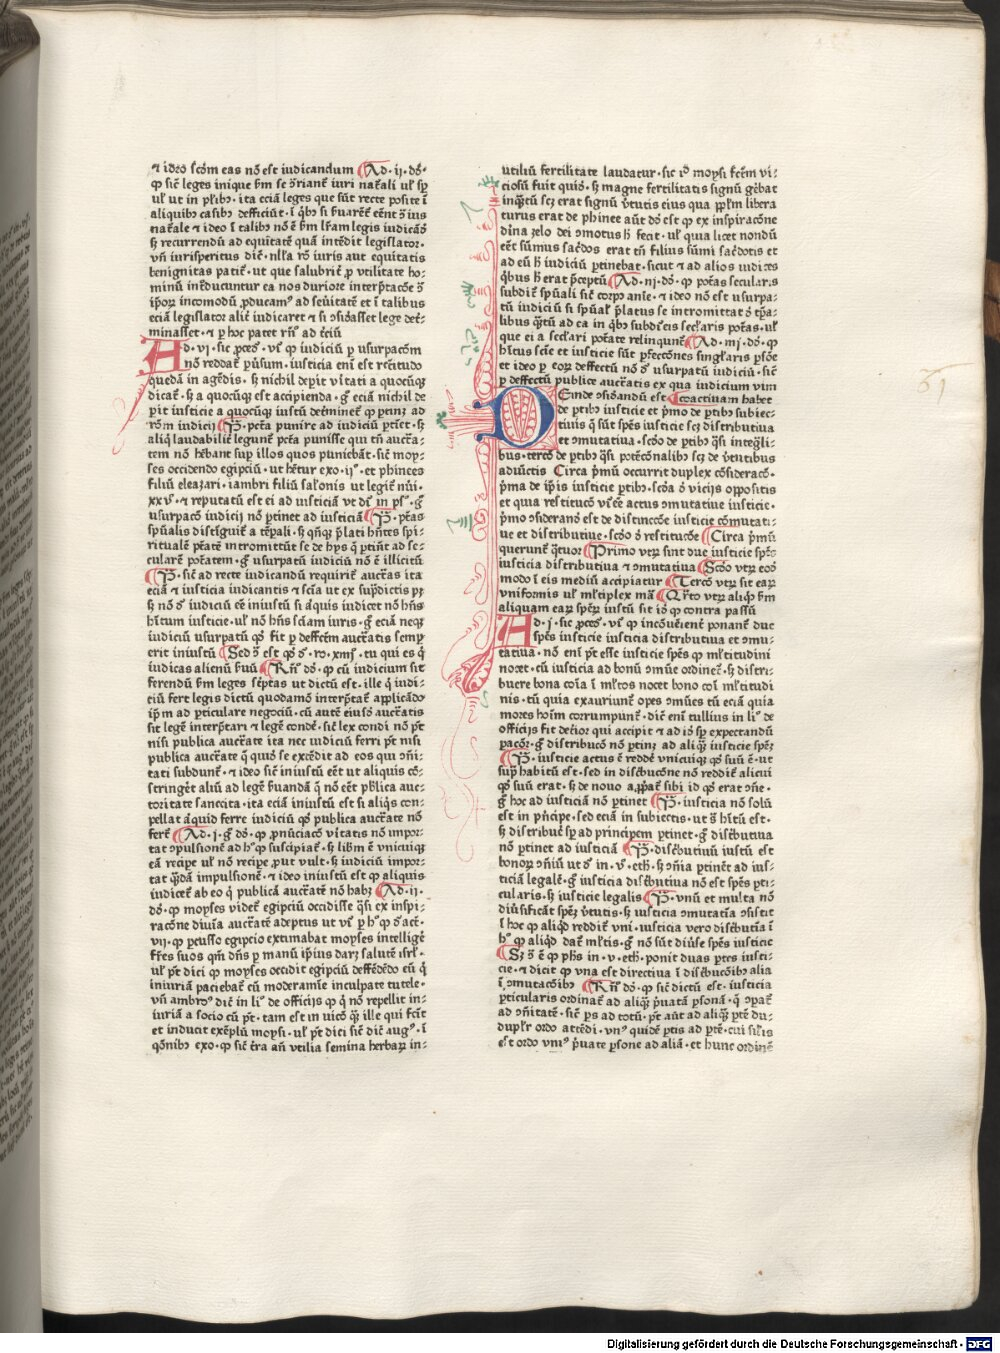 ⁊ idẽo scd̃m eas nõ est iudicandum Ad · ij · dõ ·
ꝙ sic̃ leges inique s̃m se ɔ̃riant̃ iuri nat̃ali ul̃ sp̃
ul̃ ut in pl̃ibꝰ · ita eciã leges que sũt recte posite ĩ
aliquibꝰ casibꝰ deficiũt · ĩ q̃bꝰ si s̃uarẽt̃ eẽnt ɔ̃ ius
nat̃ale ⁊ ideo ĩ talibꝰ nõ ẽ s̃m lr̃am legis iudicãdũ
sꝫ recurrendũ ad equitatẽ quã intẽdit legislator ·
vñ iurisperitus dic̃ · nl̃la rõ iuris aut equitatis
benignitas patit̃ · ut que salubrit̃ ꝓ utilitate ho-
minũ int̃ducuntur ea nos duriore interp̃tacõe ɔ̃
ip̃oꝝ incomodũ ꝓducamꝰ ad seũitatẽ et ĩ talibus
eciã legislator alit̃ iudicaret ⁊ si ɔsid̃asset lege det̃-
minasset · ⁊ p hoc patet rñ̃ ad t̃ciũ
Ad · vi · sic ꝓceđ · vr̃ ꝙ iudiciũ p usurpacõm
nõ reddat̃ puersum · iusticia eni est rectitudo
quedã in agẽdis · sꝫ nichil depit v̓itati a quocũqꝫ
dicat̃ · sꝫ a quocũqꝫ est accipienda · g̃ eciã nichil de
pit iusticie a quocũqꝫ iustũ det̃minet̃ ꝙ ptinꝫ ad
rõm iudicij P̃ · pctã punire ad iudiciũ ptiñet · sꝫ
aliq̃ laudabilit̃ legunt̃ pctã punisse qui tñ auct̃a-
tem nõ hẽbant sup̃ illos quos puniebãt · sic̃ moy-
ses occidendo egipciũ · ut hẽtur exo · ij° · et phinees
filiũ eleazari · zambri filiũ salõnis ut legit̃ nũi ·
xxv̓ · ⁊ reputatũ est ei ad iusticiã ut dr̃ in psͦ · g̃
usurpacõ iudicij nõ ptinet ad iusticiã P̃ · ptãs
spũalis distĩguit̃ a tẽpali · sꝫ qñqꝫ p̃lati hñtes spi-
ritualẽ ptãtẽ intromittũt se de hijs q̃ ptiñt ad se-
cularẽ potãtem · g̃ usurpatũ iudiciũ nõ ẽ illicitũ
P̃ · sic̃ ad recte iudicandũ requirit̃ auct̃as ita
eciã ⁊ iusticia iudicantis ⁊ scĩa ut ex sup̃dictis pꝫ
sꝫ nõ dr̃ iudiciũ eẽ iniustũ si aliquis iudicet nõ hñs
hĩtum iusticie · ul̃ nõ hñs sciam iuris · g̃ eciã neqꝫ
iudiciũ usurpatũ qd̃ fit p deffectũ auct̃atis semp
erit iniustũ Sed ɔ̃ est qd̃ dr̃ · ro · xiiij · tu qui es q̃
iudicas alienũ s̃uũ Rñ̃ dõ · ꝙ cũ iudicium sit
ferendũ s̃m leges scptas ut dictũ est · ille q̃ iudi-
ciũ fert legis dictũ quodamõ interp̃tat̃ applicãdo
ip̃m ad pticulare negociũ · cũ autẽ eiusđ auct̃atis
sit legẽ interp̃tari ⁊ legẽ conđe · sic̃ lex condi nõ pt̃
nisi publica auct̃ate ita nec iudiciũ ferri pt̃ nisi
publica auct̃ate q̃ quiđ se extẽdit ad eos qui cõi-
tati subdunt̃ · ⁊ ideo sic̃ iniustũ eẽt ut aliquis cõ-
stringet̃ aliũ ad legẽ s̃uandã q̃ nõ eẽt publica auc-
toritate sancita · ita eciã iniustũ est si aliq̃s con-
pellat aliquẽ ferre iudiciũ qd̃ publica auct̃ate nõ
fert̃ Ad · i · g̃ dõ · ꝙ pnũciacõ v̓itatis nõ impor-
tat ɔpulsionẽ ad hͦ ꝙ suscipiat̃ · sꝫ libm̃ ẽ vnicuiqꝫ
eã recipe ul̃ nõ recipe ꝓut vult · sꝫ iudiciũ impor-
tat q̃ndã impulsionẽ · ⁊ ideo iniustũ est ꝙ aliquis
iudicet̃ ab eo q̃ publicã auct̃atẽ nõ habꝫ Ad · ij ·
dõ · ꝙ moyses videt̃ egipciũ occidisse q̃si ex inspi-
racõne diuina auct̃atẽ adeptus ut vr̃ p hͦ ꝙ dr̃ act̃ ·
vij · ꝙ pcusso egipcio extimabat moyses intelligẽ
fr̃es suos qm̃ dñs p manũ ipĩus darꝫ salutẽ isrl̃ ·
ul̃ pt̃ dici ꝙ moyses occidit egipciũ deffẽdẽdo eũ q̃
iniuriã paciebat̃ cũ moderamĩe inculpate tutele ·
vñ ambroꝰ dic̃ in liͦ de officijs ꝙ q̃ nõ repellit in-
iuriã a socio cũ pt̃ · tam est in uicõ q̃ꝫ ille qui fcit̃
et inducit exẽplũ moysi · ul̃ pt̃ dici sic̃ dic̃ augꝰ · ĩ
q̃õnibꝰ exo · ꝙ sic̃ t̃ra añ vtilia semina herbaꝝ in-
utiliũ fertilitate laudatur · sic iͩ moysi fcm̃ vi-
ciosũ fuit quiđ · sꝫ magne fertilitatis signũ gẽbat
inq̃ntũ scꝫ erat signũ v̓tutis eius qua pplm̃ libera
turus erat de phinee aũt dõ est ꝙ ex inspiracõne
diũna zelo dei ɔmotus h̃ fecit · ul̃ qua licet nondũ
eẽt sũmus sac̃dos erat tñ filius sũmi sac̃dotis et
ad eũ h̃ iudiciũ ptinebat · sicut ⁊ ad alios iudices
q̃bus h̃ erat p̃ceptũ Ad · iij · dõ · ꝙ potãs secularis
subdit̃ spũali sic̃ corpꝰ anĩe · ⁊ ideo nõ est usurpa-
tũ iudiciũ si spũal̃ p̃latus se intromittat đ tp̃a-
libus q̃ntũ ad ea in q̃bꝰ subdit̃ eis secl̃aris potãs · ul̃
que ei a secl̃ari potãte relinqunt̃ Ad · iiij · dõ · ꝙ
hĩtus scie ⁊ iusticie sũt pfectõnes singl̃aris psõe
et ideo p eoꝝ deffectũ nõ dr̃ usurpatũ iudiciũ · sic̃
p deffectũ publice auct̃atis ex qua iudicium vim
Deinde ɔsid̃andũ est coactiuam habet
de ptibꝰ iusticie et p̃mo de ptibꝰ subiec-
tiuis q̃ sũt spẽs iusticie scꝫ distributiua
et ɔmutatiua · scđo de ptibꝰ q̃si integl̃i-
bus · tercõ de ptibꝰ q̃si potẽc̃onalibꝰ scꝫ de v̓tutibus
adiũctis Circa p̃mũ occurrit duplex cõsideracõ ·
p̃ma de ip̃is iusticie ptibꝰ · scđa đ vicijs oppositis
et quia restitucõ vr̃ eẽ actus ɔmutatiue iusticie ·
p̃mo ɔsiderand̃ est de distinccõe iusticie cõmutati-
ue et distributiue · scđo đ restitucõe Circa p̃mũ
querunt̃ q̃tuor Primo vtꝝ sint due iusticie spẽs
iusticia distributiua ⁊ ɔmutatiua Scđo vtꝝ eođ
modo ĩ eis mediũ accipiatur Tercõ vtꝝ sit eaꝝ
vniformis ul̃ ml̃tiplex mã Q̃rto vtꝝ aliqđ s̃m
aliquam eaꝝ spẽꝝ iustũ sit iđ ꝙ contra passũ
Ad · i · sic ꝓceđ · vr̃ ꝙ incõueñent̃ ponant̃ due
spẽs iusticie iusticia distributiua et ɔmu-
tatiua · nõ eni pt̃ esse iusticie spẽs ꝙ ml̃titudini
nocet · cũ iusticia ad bonũ ɔmũe ordinet̃ · sꝫ distri-
buere bona coĩa ĩ ml̃tos nocet bono coĩ ml̃titudi
nis · tũ quia exauriunt̃ opes ɔmũes tũ eciã quia
mores hoĩm corrumpunt̃ · dic̃ eni tullius in liͦ de
officijs fit det̃ior qui accipit ⁊ ad iđ sp̃ expectandũ
pacõꝝ · g̃ distribucõ nõ ptinꝫ ad aliq̃ iusticie spẽꝫ
P̃ · iusticie actus ẽ redđe vnicuiqꝫ qđ suũ ẽ · ut
sup̃ habitũ est · sed in distbucõne nõ reddit̃ alicui
qđ suũ erat · sꝫ de nouo appat̃ sibi id qđ erat ɔĩe ·
g̃ hoc ad iusticiã nõ ptinet P̃ · iusticia nõ solũ
est in p̃ncipe · sed eciã in subiectis · ut dr̃ hĩtũ est ·
sꝫ distribuẽ sp̃ ad principem ptinet · g̃ distbutiua
nõ ptinet ad iusticiã P̃ · distbutiuũ iustũ est
bonoꝝ ɔĩniũ ut dr̃ in · v̓ · eth · sꝫ ɔĩnia ptinẽt ad ius-
ticiã legalẽ · g̃ iusticia distbutiua nõ est spẽs pti-
cularis · sꝫ iusticie legalis P̃ · vnũ et multa nõ
diũsificãt spẽꝫ v̓tutis · sꝫ iusticia ɔmutatĩa ɔsistit
ĩ hoc ꝙ aliqđ reddit̃ vni · iusticia vero distbutĩa ĩ
hͦ ꝙ aliqđ dat̃ ml̃tis · g̃ nõ sũt diũse spẽs iusticie
Sꝫ ɔ̃ ẽ ꝙ phs̃ in · v · eth · ponit duas ptes iusti-
cie · ⁊ dicit ꝙ vna est directiua ĩ distbucõibꝰ alia
ĩ ɔmutacõibꝰ Rñ̃ dõ · ꝙ sic̃ dictũ est · iusticia
pticularis ordinat̃ ad aliq̃ p̃uatã psonã · q̃ ɔpat̃
ad ɔĩnitatẽ · sic̃ ps ad totũ · pt̃ aũt ad aliq̃ ptẽ du-
duplꝝ ordo attẽdi · vnꝰ quidẽ ptis ad ptẽ · cui sil̃is
est ordo vniꝰ p̃uate psone ad aliã · et hunc ordinẽ
Digitalisierung gefördert durch die Deutsche Forschungsgemeinschaft · DFG